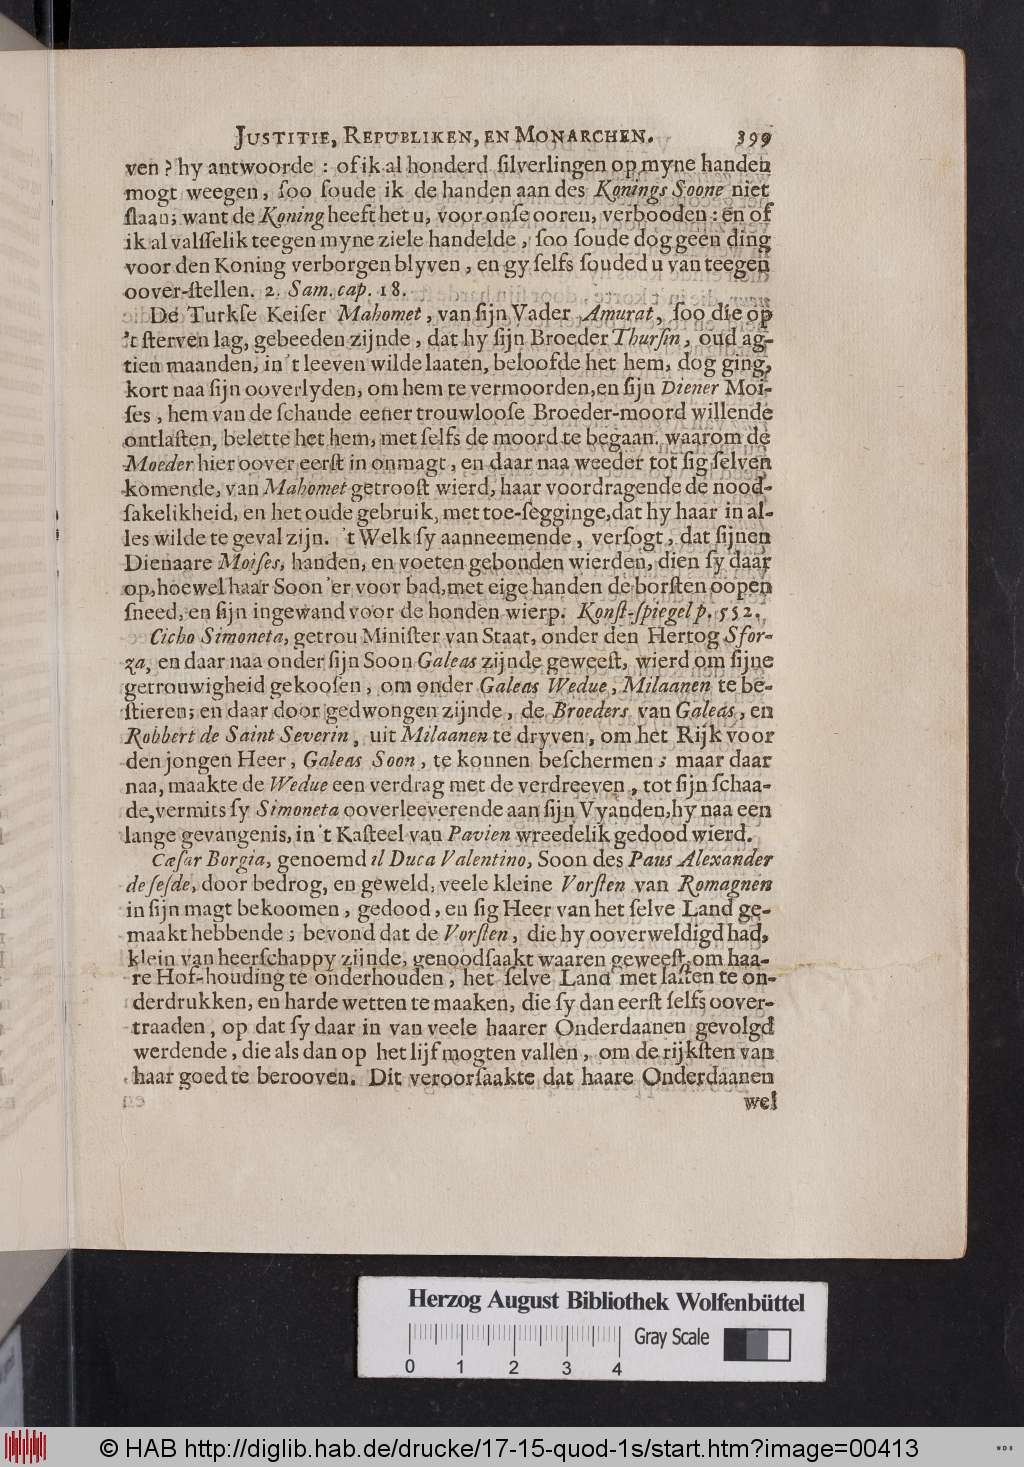 JUSTITIE, REPUBLIKEN, EN MONARCHEN. 399
ven? hy antwoorde: of ik al honderd ſilverlingen op myne handen
mogt weegen, ſoo ſoude ik de handen aan des Konings Soone niet
ſlaan; want de Koning heeft het u, voor onſe ooren, verbooden: en of
ik al valſſelik teegen myne ziele handelde, ſoo ſoude dog geen ding
voor den Koning verborgen blyven, en gy ſelfs ſouded u van teegen
oover-ſtellen. 2. Sam. cap. 18.
De Turkſe Keiſer Mahomet, van ſijn Vader Amurat, ſoo die op
't ſterven lag, gebeeden zijnde, dat hy ſijn Broeder Thurſin, oud ag-
tien maanden, in 't leeven wilde laaten, beloofde het hem, dog ging,
kort naa ſijn ooverlyden, om hem te vermoorden, en ſijn Diener Moi-
ſes, hem van de ſchande eener trouwlooſe Broeder-moord willende
ontlaſten, belette het hem, met ſelfs de moord te begaan. waarom de
Moeder hier oover eerſt in onmagt, en daar naa weeder tot ſig ſelven
komende, van Mahomet getrooſt wierd, haar voordragende de nood-
ſakelikheid, en het oude gebruik, met toe-ſegginge, dat hy haar in al-
les wilde te geval zijn. 't Welk ſy aanneemende, verſogt, dat ſijnen
Dienaare Moiſes, handen, en voeten gebonden wierden, dien ſy daar
op, hoewel haar Soon 'er voor bad, met eige handen de borſten oopen
ſneed, en ſijn ingewand voor de honden wierp. Konſt-ſpiegel p. 552.
Cicho Simoneta, getrou Miniſter van Staat, onder den Hertog Sfor-
za, en daar naa onder ſijn Soon Galeas zijnde geweeſt, wierd om ſijne
getrouwigheid gekooſen, om onder Galeas Wedue, Milaanen te be-
ſtieren; en daar door gedwongen zijnde, de Broeders van Galeas, en
Robbert de Saint Severin, uit Milaanen te dryven, om het Rijk voor
den jongen Heer, Galeas Soon, te konnen beſchermen; maar daar
naa, maakte de Wedue een verdrag met de verdreeven, tot ſijn ſchaa-
de, vermits ſy Simoneta ooverleeverende aan ſijn Vyanden, hy naa een
lange gevangenis, in 't Kaſteel van Pavien wreedelik gedood wierd.
Cæſar Borgia, genoemd il Duca Valentino, Soon des Paus Alexander
de ſeſde, door bedrog, en geweld, veele kleine Vorſten van Romagnen
in ſijn magt bekoomen, gedood, en ſig Heer van het ſelve Land ge-
maakt hebbende; bevond dat de Vorſten, die hy ooverweldigd had,
klein van heerſchappy zijnde, genoodſaakt waaren geweeſt, om haa-
re Hof-houding te onderhouden, het ſelve Land met laſten te on-
derdrukken, en harde wetten te maaken, die ſy dan eerſt ſelfs oover-
traaden, op dat ſy daar in van veele haarer Onderdaanen gevolgd
werdende, die als dan op het lijf mogten vallen, om de rijkſten van
haar goed te berooven. Dit veroorſaakte dat haare Onderdaanen
wel
Herzog August Bibliothek Wolfenbüttel
Gray Scale
0 1 2 3 4
© HAB http://diglib.hab.de/drucke/17-15-quod-1s/start.htm?image=00413